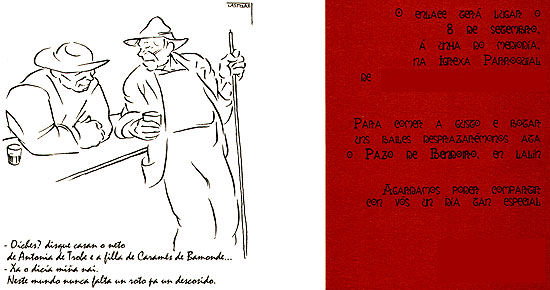 CASTELAO
- Oíches? disque casan o neto
de Antonia de Trobe e a filla de Caramés de Bamonde...
- Xa o dicía miña nai.
Neste mundo nunca falta un roto pa un descosido.
O enlace terá lugar o
8 de setembro,
á unha do mediodía,
na Igrexa Parroquial
de
Para comer a gusto e botar
uns bailes desprazarémonos ata
o Pazo de Bendoiro, en Lalín
Agardamos poder compartir
con vós un día tan especial